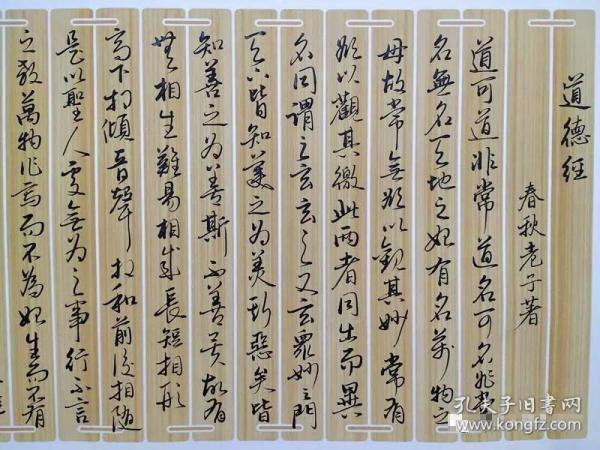 道德经
春秋老子著
道可道非常道名可名非常
名無名天地之始有名萬物之
母故常無欲以觀其妙常有
欲以觀其徼此兩者同出而異
名同謂之玄玄之又玄眾妙之門
天下皆知美之為美斯惡矣皆
知善之為善斯不善矣故有
無相生難易相成長短相形
高下相傾音聲相和前後相隨
是以聖人處無為之事行不言
之教萬物作焉而不為始生而不有
孔夫子旧书网
www.kongfz.com